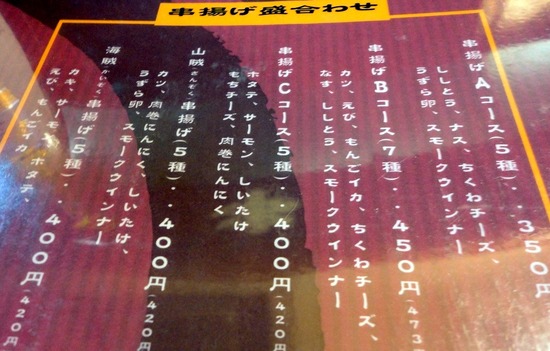 串揚げ盛合わせ
串揚げAコース(5種)・・350円
ししとう、ナス、ちくわチーズ、
うずら卵、スモークウインナー
串揚げBコース(7種)・・450円(473
カツ、えび、もんごイカ、ちくわチーズ、
なす、ししとう、スモークウインナー
串揚げCコース(5種)・・400円(420円
ホタテ、サーモン、しいたけ
もちチーズ、肉巻にんにく
山賊さんぞく串揚げ(5種)・・400円(420円
カツ、肉巻にんにく、しいたけ、
うずら卵、スモークウインナー
海賊かいぞく串揚げ(5種)・・400円(420円
カキ、サーモン、ホタテ、
えび、もんごイカ